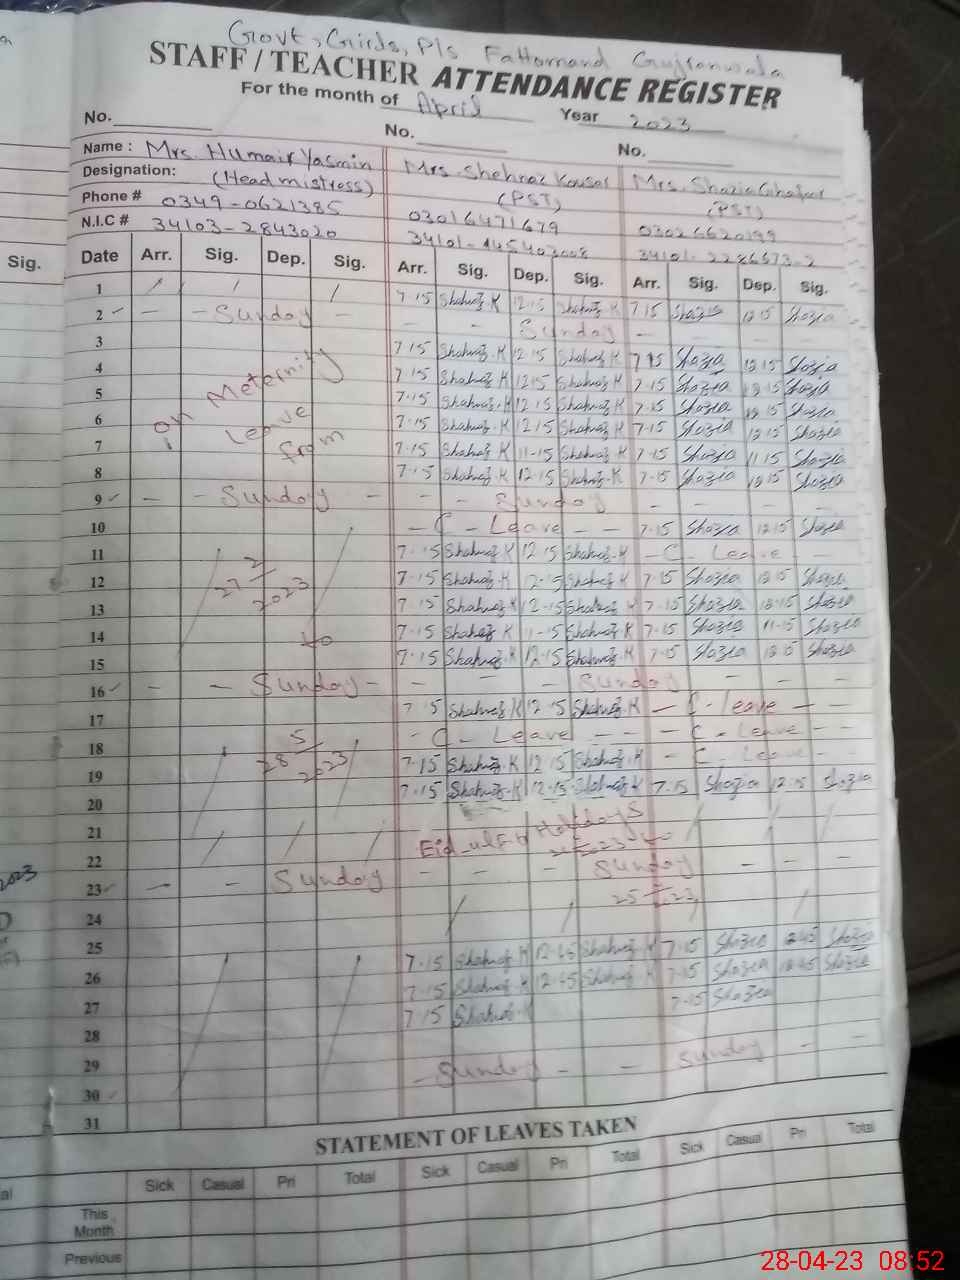 Govt, Girls, P/s Fattomand Gujranwala
STAFF / TEACHER ATTENDANCE REGISTER
For the month of April Year 2023
No. No. No.
Name : Mrs. Humair Yasmin Mrs. Shehnaz Kousar Mrs. Shazia Ghafoor
Designation: (Headmistress) (PST) (PST)
Phone # 0349-0621385 03016471679 03026620199
N.I.C # 34103-2843020 34101-145403008 34101-2286573-2
Sig. Date Arr. Sig. Dep. Sig. Arr. Sig. Dep. Sig. Arr. Sig. Dep. Sig.
1 7.15 Shahnaz.K 12.15 Shahnaz.K 7.15 Shazia 12.15 Shazia
2 - - Sunday - - - Sunday -
3 7.15 Shahnaz.K 12.15 Shahnaz.K 7.15 Shazia 12.15 Shazia
4 7.15 Shahnaz.K 12.15 Shahnaz.K 7.15 Shazia 12.15 Shazia
5 on Meternity 7.15 Shahnaz.K 12.15 Shahnaz.K 7.15 Shazia 12.15 Shazia
6 Leave 7.15 Shahnaz.K 12.15 Shahnaz.K 7.15 Shazia 12.15 Shazia
7 from 7.15 Shahnaz.K 11.15 Shahnaz.K 7.15 Shazia 11.15 Shazia
8 7.15 Shahnaz.K 12.15 Shahnaz.K 7.15 Shazia 12.15 Shazia
9 - - Sunday - - - Sunday - - -
10 - C - Leave - - 7.15 Shazia 12.15 Shazia
11 7.15 Shahnaz.K 12.15 Shahnaz.K - C - Leave -
12 27 2/2023 7.15 Shahnaz.K 12.15 Shahnaz.K 7.15 Shazia 12.15 Shazia
13 7.15 Shahnaz.K 12.15 Shahnaz.K 7.15 Shazia 12.15 Shazia
14 to 7.15 Shahnaz.K 11.15 Shahnaz.K 7.15 Shazia 11.15 Shazia
15 7.15 Shahnaz.K 12.15 Shahnaz.K 7.15 Shazia 12.15 Shazia
16 - - Sunday - - - - Sunday - -
17 7.15 Shahnaz.K 12.15 Shahnaz.K - C - leave - -
18 28 5/2023 - C - Leave - - - C - Leave -
19 7.15 Shahnaz.K 12.15 Shahnaz.K - C - Leave -
20 7.15 Shahnaz.K 12.15 Shahnaz.K 7.15 Shazia 12.15 Shazia
21
22 Eid-ul Holidays
23 - - Sunday - - - Sunday - -
24
25
26 7.15 Shahnaz.K 12.45 Shahnaz.K 7.15 Shazia 12.45 Shazia
27 7.15 Shahnaz.K 12.45 Shahnaz.K 7.15 Shazia 12.45 Shazia
28 7.15 Shahnaz.K 7.15 Shazia
29
30 - Sunday - - Sunday - -
31
STATEMENT OF LEAVES TAKEN
Sick Casual Pri Total Sick Casual Pri Total Sick Casual Pri Total
This Month
Previous
28-04-23 08:52